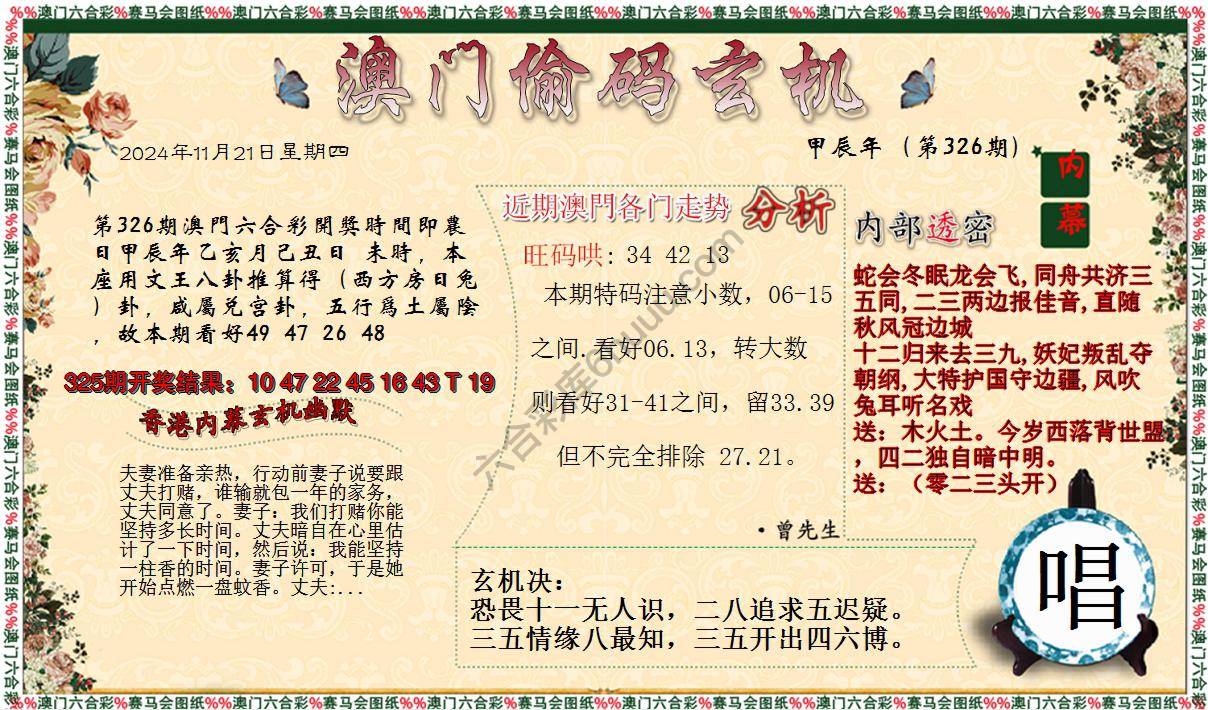 %%澳门六合彩%赛马会图纸%%澳门六合彩%赛马会图纸%%澳门六合彩%赛马会图纸%%澳门六合彩%赛马会图纸%%澳门六合彩%赛马会图纸%%澳门六合彩%赛马会图纸%%
澳门偷码玄机
2024年11月21日星期四
甲辰年（第326期）
内
幕
第326期澳門六合彩開獎時間即農
日甲辰年乙亥月己丑日 未時，本
座用文王八卦推算得（西方房日兔
）卦，咸屬兑宫卦，五行爲土屬陰
，故本期看好49 47 26 48
325期开奖结果：10 47 22 45 16 43 T 19
香港内幕玄机幽默
夫妻准备亲热，行动前妻子说要跟
丈夫打赌，谁输就包一年的家务，
丈夫同意了。妻子：我们打赌你能
坚持多长时间。丈夫暗自在心里估
计了一下时间，然后说：我能坚持
一柱香的时间。妻子许可，于是她
开始点燃一盘蚊香。丈夫:...
近期澳門各门走勢 分析
旺码哄: 34 42 13
本期特码注意小数，06-15
之间.看好06.13，转大数
则看好31-41之间，留33.39
但不完全排除 27.21。
·曾先生
内部透密
蛇会冬眠龙会飞,同舟共济三
五同,二三两边报佳音,直随
秋风冠边城
十二归来去三九,妖妃叛乱夺
朝纲,大特护国守边疆,风吹
兔耳听名戏
送：木火土。今岁西落背世盟
，四二独自暗中明。
送：（零二三头开）
玄机决：
恐畏十一无人识，二八追求五迟疑。
三五情缘八最知，三五开出四六博。
唱
%%澳门六合彩%赛马会图纸%%澳门六合彩%赛马会图纸%%澳门六合彩%赛马会图纸%%澳门六合彩%赛马会图纸%%澳门六合彩%赛马会图纸%%澳门六合彩%赛马会图纸%%